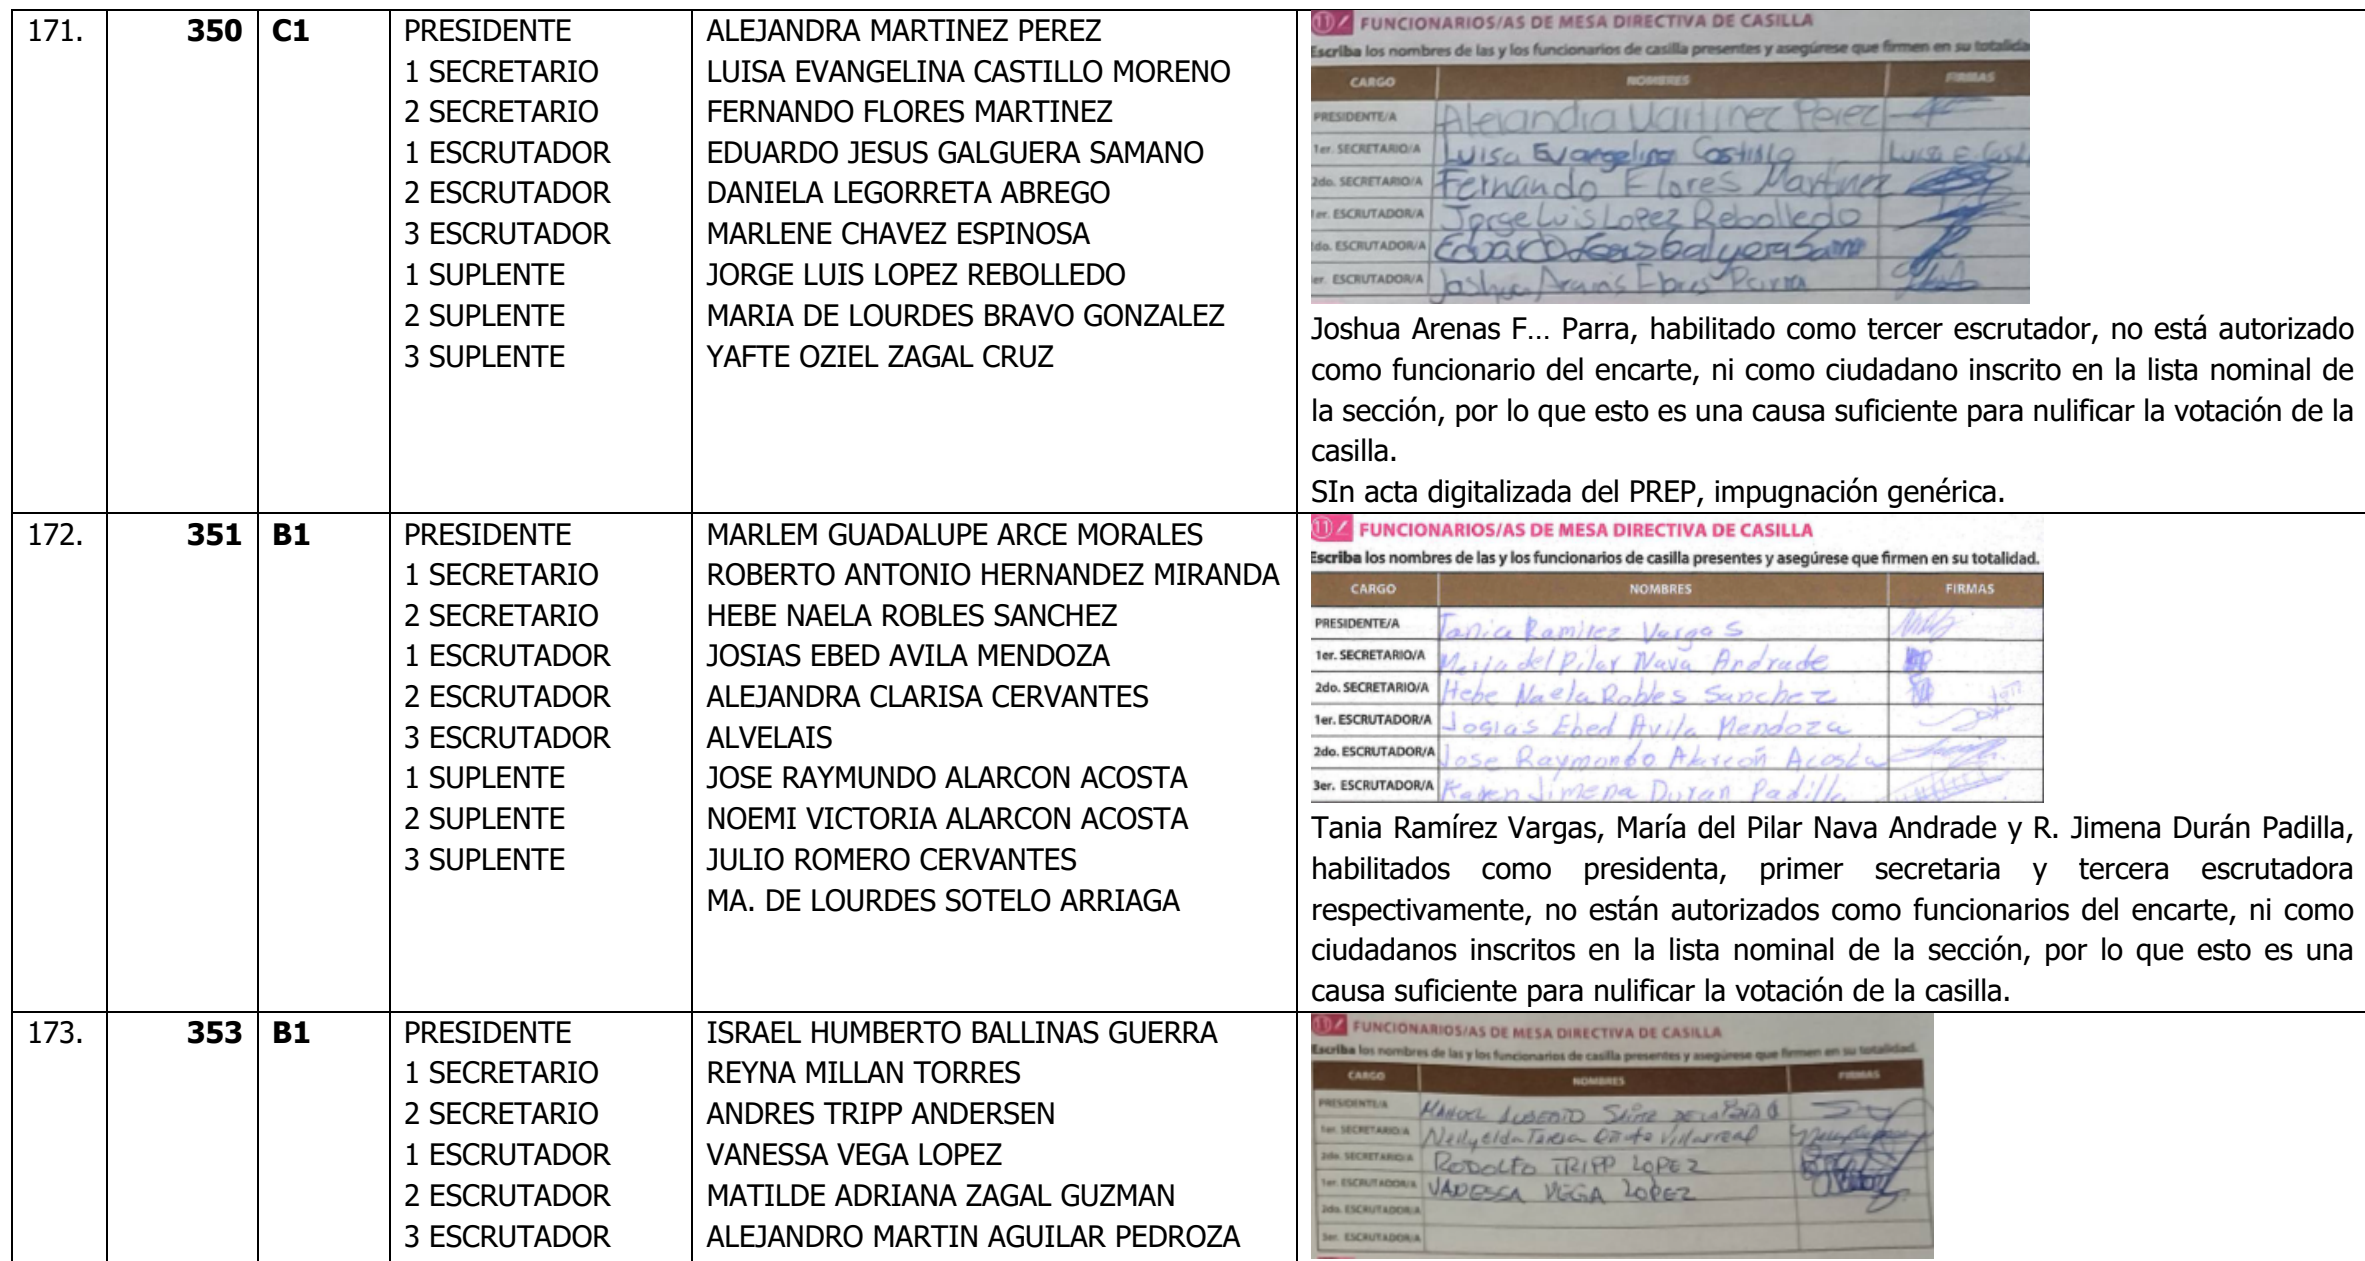 171. 350 C1 PRESIDENTE ALEJANDRA MARTINEZ PEREZ
1 SECRETARIO LUISA EVANGELINA CASTILLO MORENO
2 SECRETARIO FERNANDO FLORES MARTINEZ
1 ESCRUTADOR EDUARDO JESUS GALGUERA SAMANO
2 ESCRUTADOR DANIELA LEGORRETA ABREGO
3 ESCRUTADOR MARLENE CHAVEZ ESPINOSA
1 SUPLENTE JORGE LUIS LOPEZ REBOLLEDO
2 SUPLENTE MARIA DE LOURDES BRAVO GONZALEZ
3 SUPLENTE YAFTE OZIEL ZAGAL CRUZ
11 FUNCIONARIOS/AS DE MESA DIRECTIVA DE CASILLA
Escriba los nombres de las y los funcionarios de casilla presentes y asegúrese que firmen en su totalida
CARGO NOMBRES FIRMAS
PRESIDENTE/A Alejandra Martinez Perez
1er. SECRETARIO/A Luisa Evangelina Castillo Luisa E. Cast
2do. SECRETARIO/A Fernando Flores Martinez
1er. ESCRUTADOR/A Jorge Luis Lopez Rebolledo
2do. ESCRUTADOR/A Eduardo Jesus Galguera
er. ESCRUTADOR/A Joshua Parra
Joshua Arenas F... Parra, habilitado como tercer escrutador, no está autorizado
como funcionario del encarte, ni como ciudadano inscrito en la lista nominal de
la sección, por lo que esto es una causa suficiente para nulificar la votación de la
casilla.
SIn acta digitalizada del PREP, impugnación genérica.
172. 351 B1 PRESIDENTE MARLEM GUADALUPE ARCE MORALES
1 SECRETARIO ROBERTO ANTONIO HERNANDEZ MIRANDA
2 SECRETARIO HEBE NAELA ROBLES SANCHEZ
1 ESCRUTADOR JOSIAS EBED AVILA MENDOZA
2 ESCRUTADOR ALEJANDRA CLARISA CERVANTES
3 ESCRUTADOR ALVELAIS
1 SUPLENTE JOSE RAYMUNDO ALARCON ACOSTA
2 SUPLENTE NOEMI VICTORIA ALARCON ACOSTA
3 SUPLENTE JULIO ROMERO CERVANTES
MA. DE LOURDES SOTELO ARRIAGA
11 FUNCIONARIOS/AS DE MESA DIRECTIVA DE CASILLA
Escriba los nombres de las y los funcionarios de casilla presentes y asegúrese que firmen en su totalidad.
CARGO NOMBRES FIRMAS
PRESIDENTE/A Tania Ramirez Vargas
1er. SECRETARIO/A Maria del Pilar Nava Andrade
2do. SECRETARIO/A Hebe Naela Robles Sanchez
1er. ESCRUTADOR/A Josias Ebed Avila Mendoza
2do. ESCRUTADOR/A Jose Raymondo Alarcón Acosta
3er. ESCRUTADOR/A Karen Jimena Duran Padilla
Tania Ramírez Vargas, María del Pilar Nava Andrade y R. Jimena Durán Padilla,
habilitados como presidenta, primer secretaria y tercera escrutadora
respectivamente, no están autorizados como funcionarios del encarte, ni como
ciudadanos inscritos en la lista nominal de la sección, por lo que esto es una
causa suficiente para nulificar la votación de la casilla.
173. 353 B1 PRESIDENTE ISRAEL HUMBERTO BALLINAS GUERRA
1 SECRETARIO REYNA MILLAN TORRES
2 SECRETARIO ANDRES TRIPP ANDERSEN
1 ESCRUTADOR VANESSA VEGA LOPEZ
2 ESCRUTADOR MATILDE ADRIANA ZAGAL GUZMAN
3 ESCRUTADOR ALEJANDRO MARTIN AGUILAR PEDROZA
11 FUNCIONARIOS/AS DE MESA DIRECTIVA DE CASILLA
Escriba los nombres de las y los funcionarios de casilla presentes y asegúrese que firmen en su totalidad.
CARGO NOMBRES FIRMAS
PRESIDENTE/A MANUEL
1er. SECRETARIO/A Teresa Villarreal
2do. SECRETARIO/A RODOLFO TRIPP LOPEZ
1er. ESCRUTADOR/A VADESSA VEGA LOPEZ
2do. ESCRUTADOR/A
3er. ESCRUTADOR/A